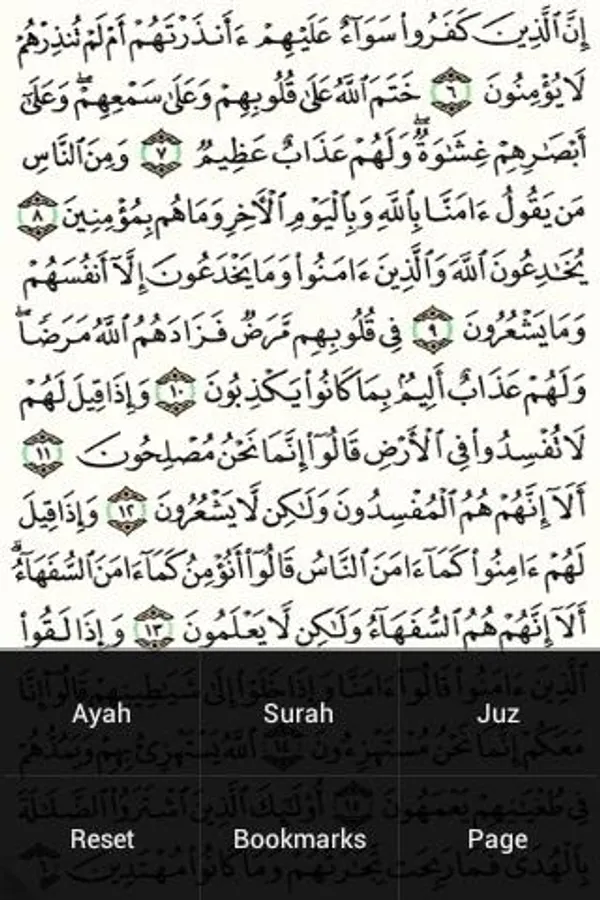 إِنَّ ٱلَّذِينَ كَفَرُوا۟ سَوَآءٌ عَلَيْهِمْ ءَأَنذَرْتَهُمْ أَمْ لَمْ تُنذِرْهُمْ
لَا يُؤْمِنُونَ ٦ خَتَمَ ٱللَّهُ عَلَىٰ قُلُوبِهِمْ وَعَلَىٰ سَمْعِهِمْ ۖ وَعَلَىٰٓ
أَبْصَـٰرِهِمْ غِشَـٰوَةٌ ۖ وَلَهُمْ عَذَابٌ عَظِيمٌ ٧ وَمِنَ ٱلنَّاسِ
مَن يَقُولُ ءَامَنَّا بِٱللَّهِ وَبِٱلْيَوْمِ ٱلْـَٔاخِرِ وَمَا هُم بِمُؤْمِنِينَ ٨
يُخَـٰدِعُونَ ٱللَّهَ وَٱلَّذِينَ ءَامَنُوا۟ وَمَا يَخْدَعُونَ إِلَّآ أَنفُسَهُمْ
وَمَا يَشْعُرُونَ ٩ فِى قُلُوبِهِم مَّرَضٌ فَزَادَهُمُ ٱللَّهُ مَرَضًا ۖ
وَلَهُمْ عَذَابٌ أَلِيمٌۢ بِمَا كَانُوا۟ يَكْذِبُونَ ١٠ وَإِذَا قِيلَ لَهُمْ
لَا تُفْسِدُوا۟ فِى ٱلْأَرْضِ قَالُوٓا۟ إِنَّمَا نَحْنُ مُصْلِحُونَ ١١
أَلَآ إِنَّهُمْ هُمُ ٱلْمُفْسِدُونَ وَلَـٰكِن لَّا يَشْعُرُونَ ١٢ وَإِذَا قِيلَ
لَهُمْ ءَامِنُوا۟ كَمَآ ءَامَنَ ٱلنَّاسُ قَالُوٓا۟ أَنُؤْمِنُ كَمَآ ءَامَنَ ٱلسُّفَهَآءُ ۗ
أَلَآ إِنَّهُمْ هُمُ ٱلسُّفَهَآءُ وَلَـٰكِن لَّا يَعْلَمُونَ ١٣ وَإِذَا لَقُوا۟
ٱلَّذِينَ ءَامَنُوا۟ قَالُوٓا۟ ءَامَنَّا وَإِذَا خَلَوْا۟ إِلَىٰ شَيَـٰطِينِهِمْ قَالُوٓا۟ إِنَّا
Ayah Surah Juz
مَعَكُمْ إِنَّمَا نَحْنُ مُسْتَهْزِءُونَ ١٤ ٱللَّهُ يَسْتَهْزِئُ بِهِمْ وَيَمُدُّهُمْ
فِى طُغْيَـٰنِهِمْ يَعْمَهُونَ ١٥ أُو۟لَـٰٓئِكَ ٱلَّذِينَ ٱشْتَرَوُا۟ ٱلضَّلَـٰلَةَ
Reset Bookmarks Page
بِٱلْهُدَىٰ فَمَا رَبِحَت تِّجَـٰرَتُهُمْ وَمَا كَانُوا۟ مُهْتَدِينَ